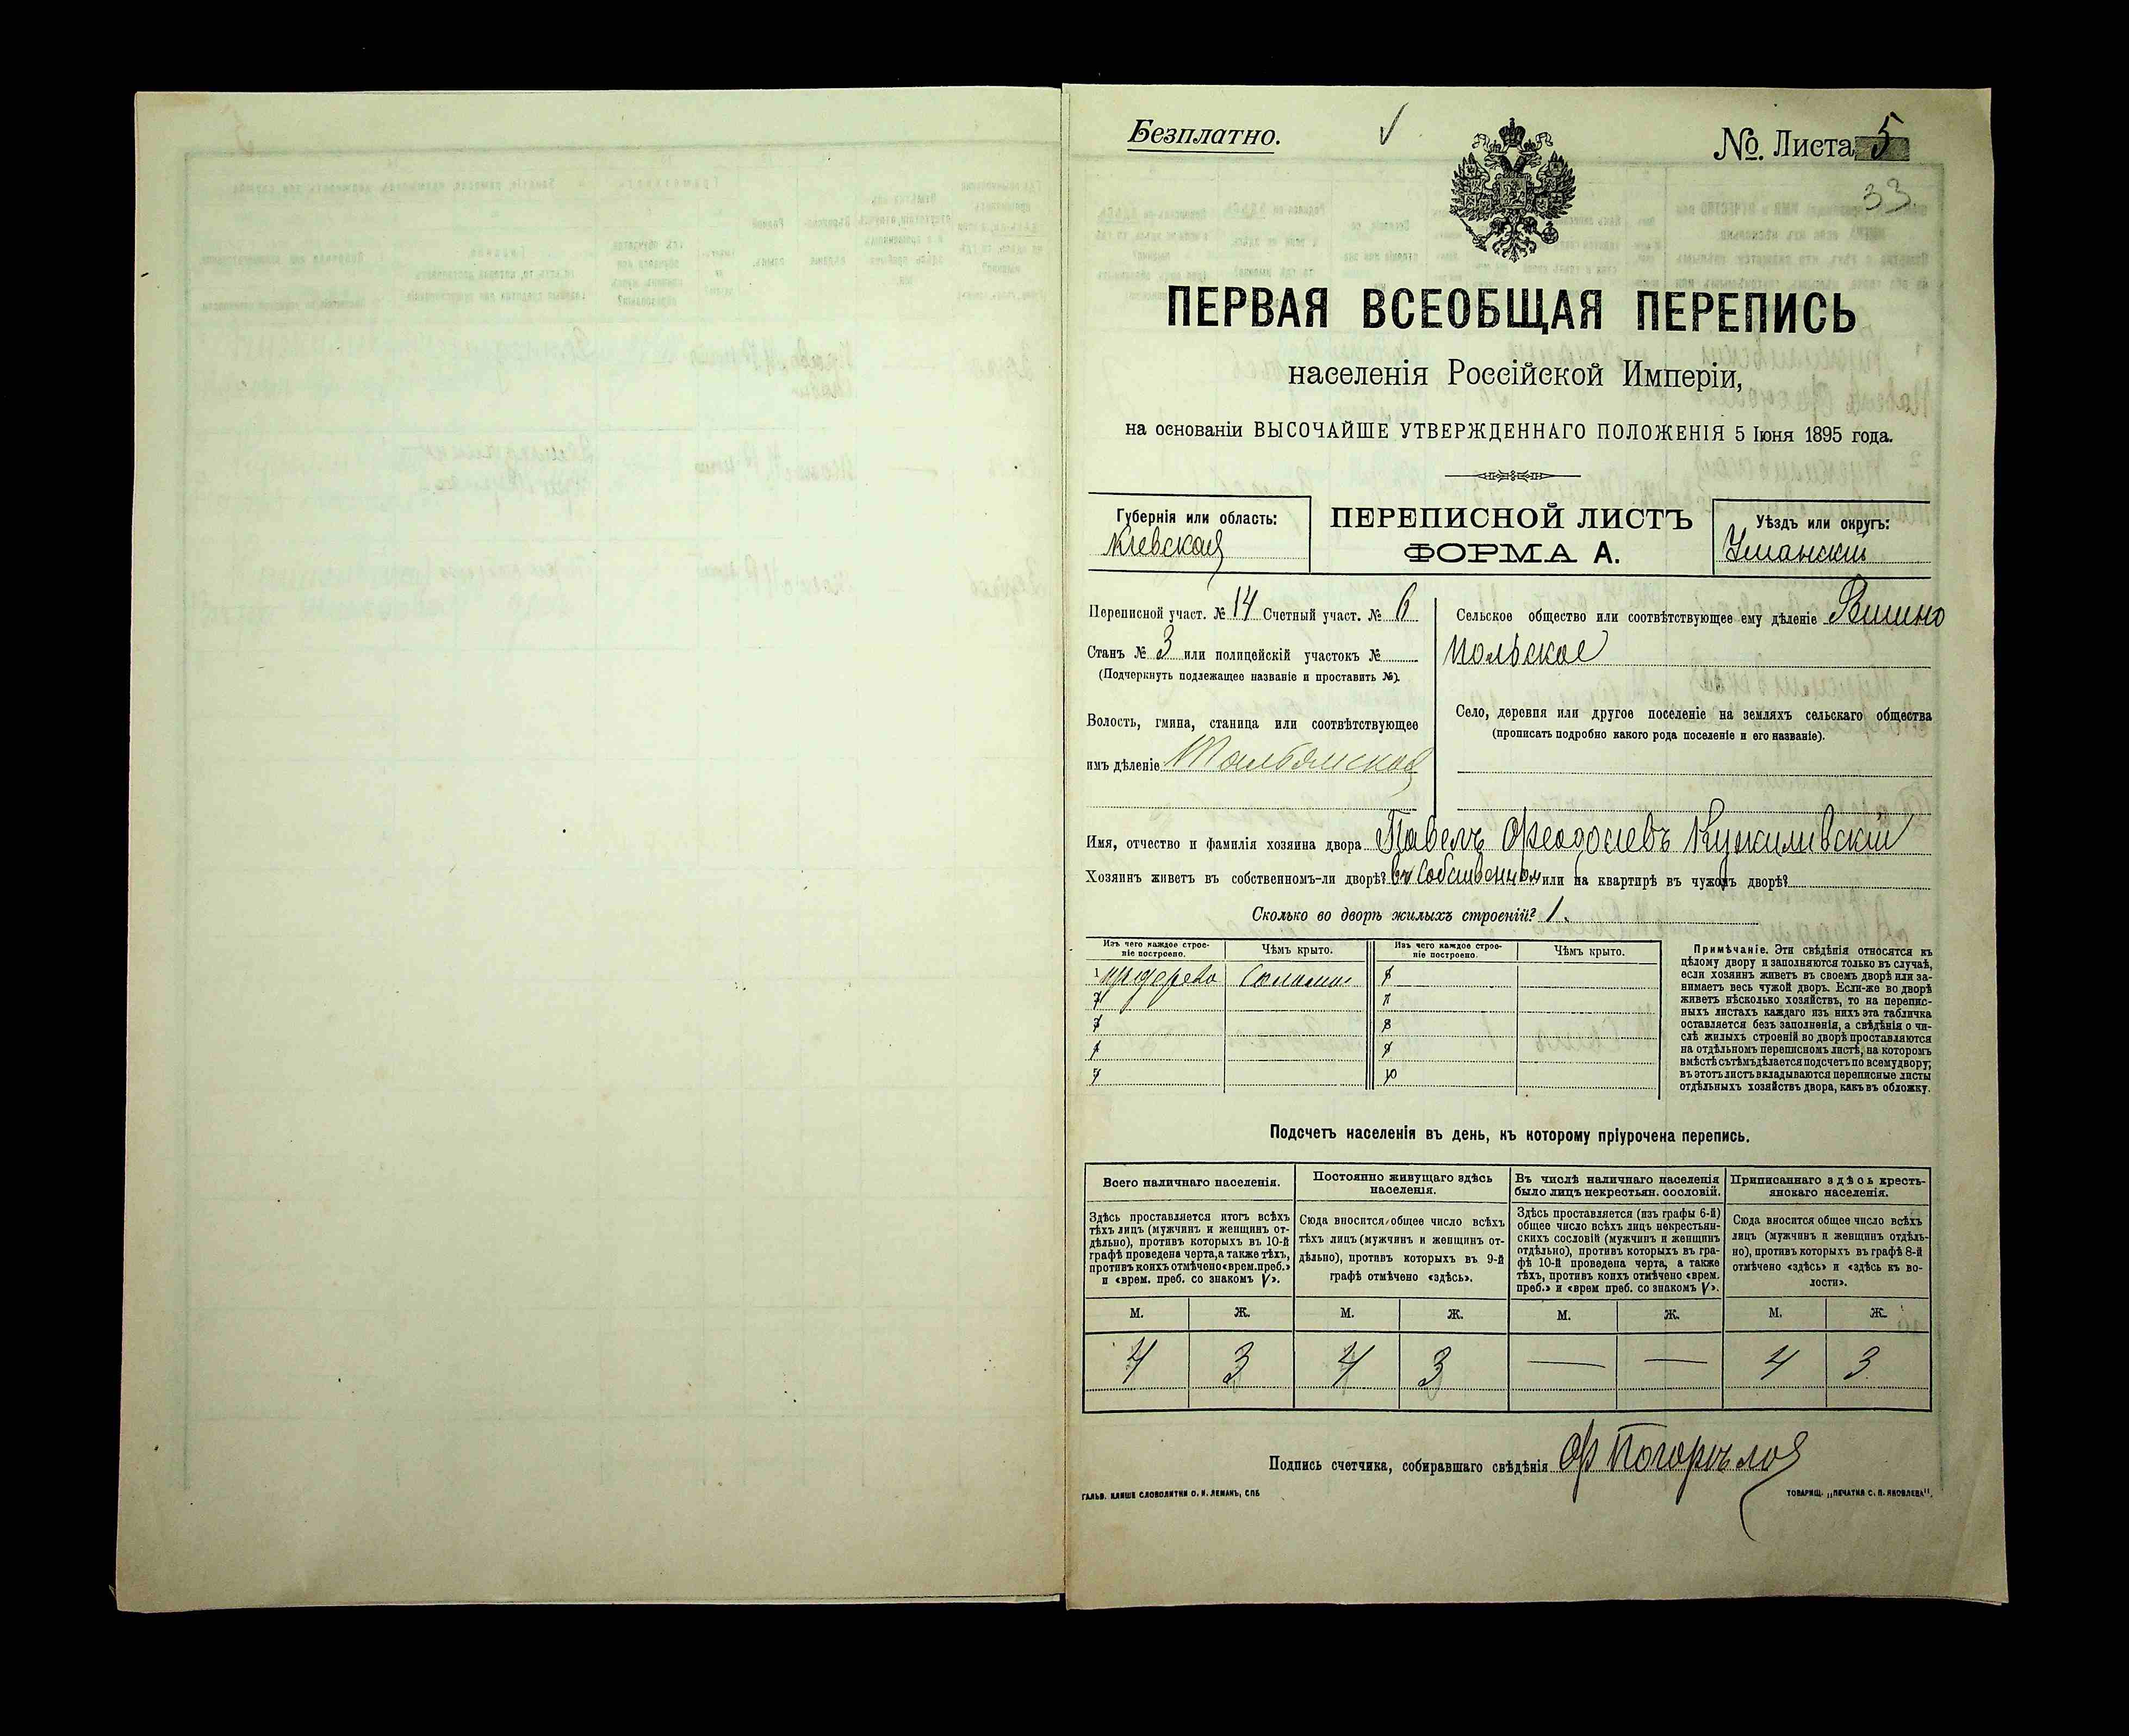 Безплатно.
№ Листа 5
33
ПЕРВАЯ ВСЕОБЩАЯ ПЕРЕПИСЬ
населенія Россійской Имперіи,
на основаніи ВЫСОЧАЙШЕ УТВЕРЖДЕННАГО ПОЛОЖЕНІЯ 5 Іюня 1895 года.
Губернія или область:
Кіевская
ПЕРЕПИСНОЙ ЛИСТЪ
ФОРМА А.
Уѣздъ или округъ:
Уманскій
Переписной участ. № 14 Счетный участ. № 6
Станъ № 3 или полицейскій участокъ №
(Подчеркнуть подлежащее названіе и проставить №).
Волость, гмина, станица или соотвѣтствующее
имъ дѣленіе
Сельское общество или соотвѣтствующее ему дѣленіе Вишно
польское
Село, деревня или другое поселеніе на земляхъ сельскаго общества
(прописать подробно какого рода поселеніе и его названіе).
Имя, отчество и фамилія хозяина двора Павелъ Феодосіевъ
Хозяинъ живетъ въ собственномъ-ли дворѣ? въ собственном или на квартирѣ въ чужомъ дворѣ?
Сколько во дворѣ жилыхъ строеній? 1.
Изъ чего каждое строе-
ніе построено.
Чѣмъ крыто.
Изъ чего каждое строе-
ніе построено.
Чѣмъ крыто.
1 дерева
6
2
7
3
8
4
9
5
10
Примѣчаніе. Эти свѣдѣнія относятся къ
цѣлому двору и заполняются только въ случаѣ,
если хозяинъ живетъ въ своемъ дворѣ или за-
нимаетъ весь чужой дворъ. Если-же во дворѣ
живетъ нѣсколько хозяйствъ, то на перепис-
ныхъ листахъ каждаго изъ нихъ эта табличка
оставляется безъ заполненія, а свѣдѣнія о чи-
слѣ жилыхъ строеній во дворѣ проставляются
на отдѣльномъ переписномъ листѣ, на которомъ
вмѣстѣ съ тѣмъ дѣлается подсчетъ по всему двору;
въ этотъ листъ вкладываются переписные листы
отдѣльныхъ хозяйствъ двора, какъ въ обложку.
Подсчетъ населенія въ день, къ которому пріурочена перепись.
Всего наличнаго населенія.
Здѣсь проставляется итогъ всѣхъ
тѣхъ лицъ (мужчинъ и женщинъ от-
дѣльно), противъ которыхъ въ 10-й
графѣ проведена черта, а также тѣхъ,
противъ коихъ отмѣчено «врем. преб.»
и «врем. преб. со знакомъ V».
Постоянно живущаго здѣсь
населенія.
Сюда вносится общее число всѣхъ
тѣхъ лицъ (мужчинъ и женщинъ от-
дѣльно), противъ которыхъ въ 9-й
графѣ отмѣчено «здѣсь».
Въ числѣ наличнаго населенія
было лицъ некрестьян. сословій.
Здѣсь проставляется (изъ графы 6-й)
общее число всѣхъ лицъ некрестьян-
скихъ сословій (мужчинъ и женщинъ
отдѣльно), противъ которыхъ въ гра-
фѣ 10-й проведена черта, а также
тѣхъ, противъ коихъ отмѣчено «врем.
преб.» и «врем преб. со знакомъ V».
Приписаннаго здѣсь кресть-
янскаго населенія.
Сюда вносится общее число всѣхъ
лицъ (мужчинъ и женщинъ отдѣль-
но), противъ которыхъ въ графѣ 8-й
отмѣчено «здѣсь» и «здѣсь къ во-
лости».
М. Ж. М. Ж. М. Ж. М. Ж.
4 3 4 3 — — 4 3
Подпись счетчика, собиравшаго свѣдѣнія
ГАЛЬВ. КЛИШЕ СЛОВОЛИТНИ О. И. ЛЕМАНЪ, СПБ
ТОВАРИЩ. „ПЕЧАТНЯ С. П. ЯКОВЛЕВА".